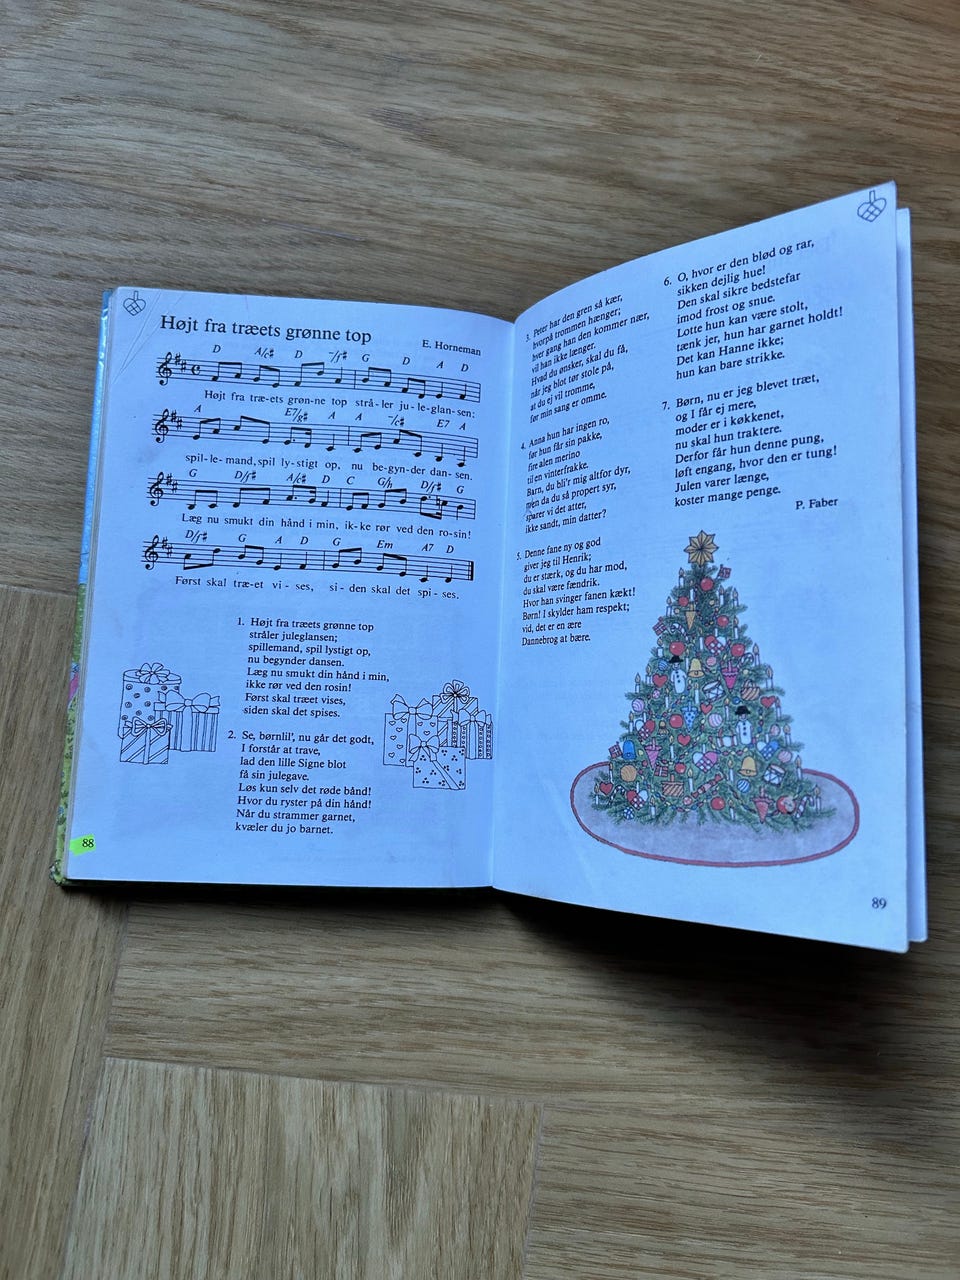 Højt fra træets grønne top
E. Horneman
D A/c# D -/f# G D A D
Højt fra træ-ets grøn-ne top strå-ler ju-le-glan-sen:
A E7/g# A A -/c# E7 A
spil-le-mand, spil ly-stigt op, nu be-gyn-der dan-sen.
G D/f# A/c# D C G/h D/f# G
Læg nu smukt din hånd i min, ik-ke rør ved den ro-sin!
D/f# G A D G Em A7 D
Først skal træ-et vi-ses, si-den skal det spi-ses.
1. Højt fra træets grønne top
stråler juleglansen;
spillemand, spil lystigt op,
nu begynder dansen.
Læg nu smukt din hånd i min,
ikke rør ved den rosin!
Først skal træet vises,
siden skal det spises.
2. Se, børnlil', nu går det godt,
I forstår at trave,
lad den lille Signe blot
få sin julegave.
Løs kun selv det røde bånd!
Hvor du ryster på din hånd!
Når du strammer garnet,
kvæler du jo barnet.
88
3. Peter har den gren så kær,
hvorpå trommen hænger;
hver gang han den kommer nær,
vil han ikke længer.
Hvad du ønsker, skal du få,
når jeg blot tør stole på,
at du ej vil tromme,
før min sang er omme.
4. Anna hun har ingen ro,
før hun får sin pakke,
fire alen merino
til en vinterfrakke.
Barn, du bli'r mig altfor dyr,
men da du så propert syr,
sparer vi det atter,
ikke sandt, min datter?
5. Denne fane ny og god
giver jeg til Henrik;
du er stærk, og du har mod,
du skal være fændrik.
Hvor han svinger fanen kækt!
Børn! I skylder ham respekt;
vid, det er en ære
Dannebrog at bære.
6. O, hvor er den blød og rar,
sikken dejlig hue!
Den skal sikre bedstefar
imod frost og snue.
Lotte hun kan være stolt,
tænk jer, hun har garnet holdt!
Det kan Hanne ikke;
hun kan bare strikke.
7. Børn, nu er jeg blevet træt,
og I får ej mere,
moder er i køkkenet,
nu skal hun traktere.
Derfor får hun denne pung,
løft engang, hvor den er tung!
Julen varer længe,
koster mange penge.
P. Faber
89